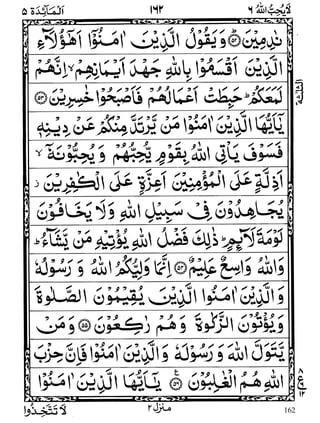 لَا يُحِبُّ اللهُ ٦ ١٦٢ اَلْمَآئِدَة ٥
نٰدِمِيْنَ ۟ؕ﴿۵۲﴾ وَيَقُوْلُ الَّذِيْنَ اٰمَنُوْۤا اَهٰٓؤُلَآءِ
الَّذِيْنَ اَقْسَمُوْا بِاللّٰهِ جَهْدَ اَيْمَانِهِمْ ۙ اِنَّهُمْ
لَمَعَكُمْ ؕ حَبِطَتْ اَعْمَالُهُمْ فَاَصْبَحُوْا خٰسِرِيْنَ ﴿۵۳﴾
يٰۤاَيُّهَا الَّذِيْنَ اٰمَنُوْا مَنْ يَّرْتَدَّ مِنْكُمْ عَنْ دِيْنِهٖ
فَسَوْفَ يَاْتِي اللّٰهُ بِقَوْمٍ يُّحِبُّهُمْ وَ يُحِبُّوْنَهٗۤ ۙ
اَذِلَّةٍ عَلَى الْمُؤْمِنِيْنَ اَعِزَّةٍ عَلَى الْكٰفِرِيْنَ ز
يُجَاهِدُوْنَ فِيْ سَبِيْلِ اللّٰهِ وَلَا يَخَافُوْنَ
لَوْمَةَ لَآئِمٍ ؕ ذٰلِكَ فَضْلُ اللّٰهِ يُؤْتِيْهِ مَنْ يَّشَآءُ ؕ
وَاللّٰهُ وَاسِعٌ عَلِيْمٌ ﴿۵۴﴾ اِنَّمَا وَلِيُّكُمُ اللّٰهُ وَ رَسُوْلُهٗ
وَ الَّذِيْنَ اٰمَنُوا الَّذِيْنَ يُقِيْمُوْنَ الصَّلٰوةَ
وَ يُؤْتُوْنَ الزَّكٰوةَ وَ هُمْ رٰكِعُوْنَ ﴿۵۵﴾ وَ مَنْ
يَّتَوَلَّ اللّٰهَ وَ رَسُوْلَهٗ وَ الَّذِيْنَ اٰمَنُوْا فَاِنَّ حِزْبَ
اللّٰهِ هُمُ الْغٰلِبُوْنَ ﴿۵۶﴾ يٰۤاَيُّهَا الَّذِيْنَ اٰمَنُوْا
162 منزل ٢ لَا تَتَّخِذُوا